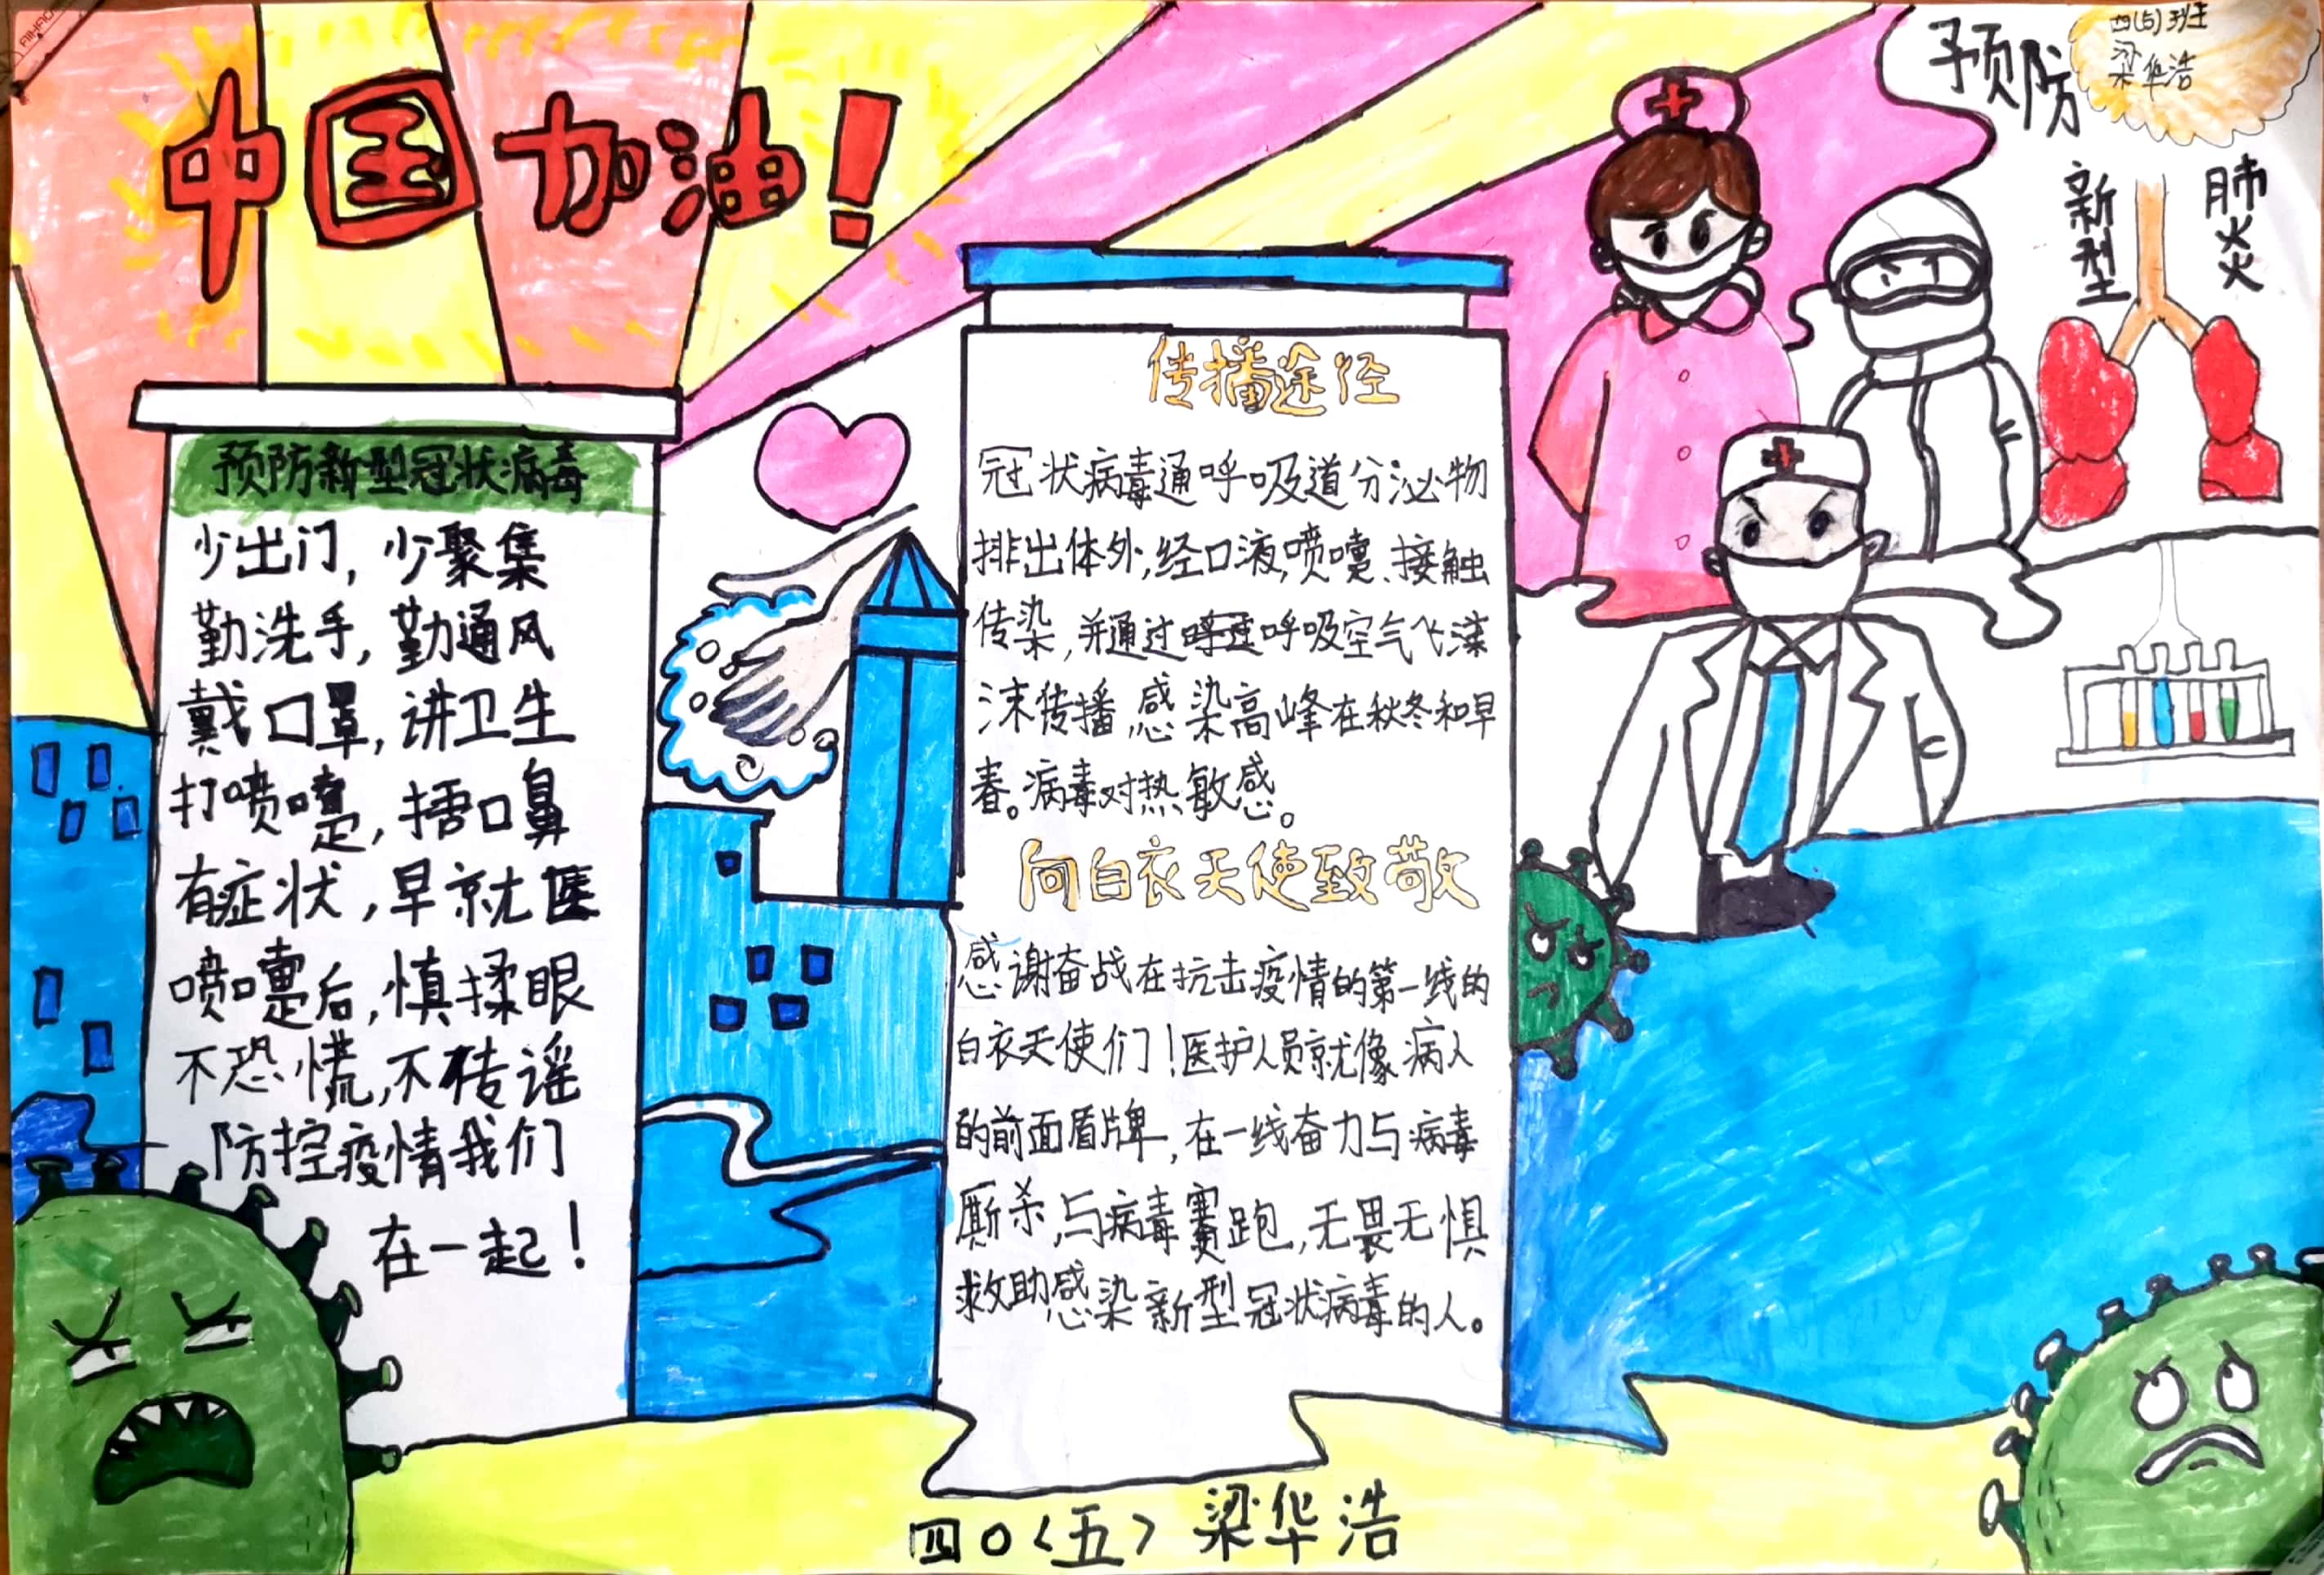 中国加油！
预防
四(5)班
梁华浩
新型
肺炎
预防新型冠状病毒
少出门，少聚集
勤洗手，勤通风
戴口罩，讲卫生
打喷嚏，捂口鼻
有症状，早就医
喷嚏后，慎揉眼
不恐慌，不传谣
防控疫情我们
在一起！
传播途径
冠状病毒通呼吸道分泌物
排出体外，经口液，喷嚏、接触
传染，并通过呼吸空气飞沫
沫传播，感染高峰在秋冬和早
春。病毒对热敏感。
向白衣天使致敬
感谢奋战在抗击疫情的第一线的
白衣天使们！医护人员就像病人
的前面盾牌，在一线奋力与病毒
厮杀，与病毒赛跑，无畏无惧
救助感染新型冠状病毒的人。
四〇〈五〉梁华浩